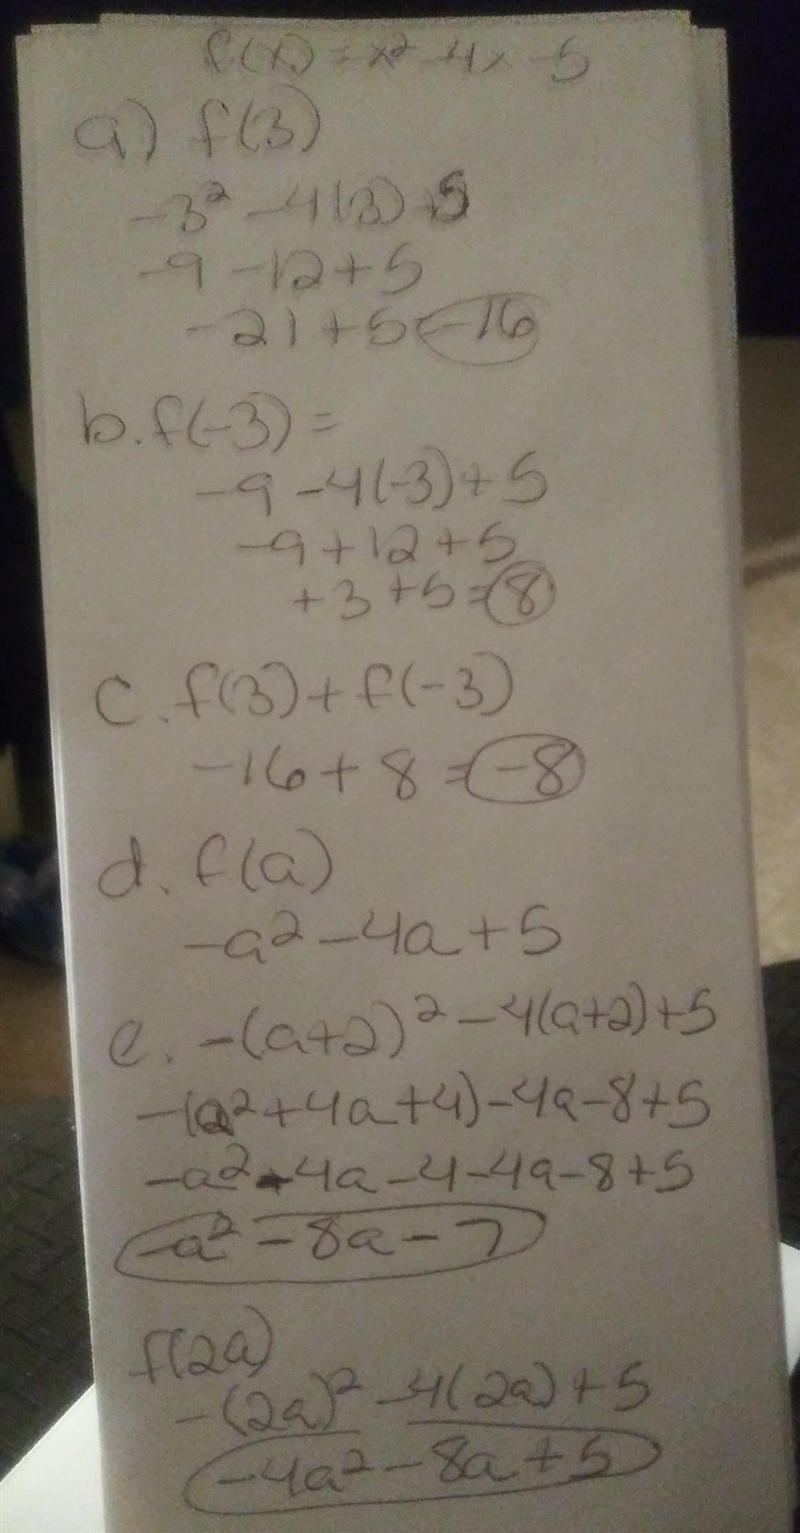 f(x) = x² -4x -5
a) f(3)
-3² -4(3)+5
-9 -12+5
-21+5=-16
b. f(-3)=
-9 -4(-3)+5
-9+12+5
+3+5=8
c. f(3)+f(-3)
-16+8=-8
d. f(a)
-a²-4a+5
e. -(a+2)²-4(a+2)+5
-(a²+4a+4)-4a-8+5
-a²-4a-4-4a-8+5
-a²-8a-7
f(2a)
-(2a)²-4(2a)+5
-4a²-8a+5